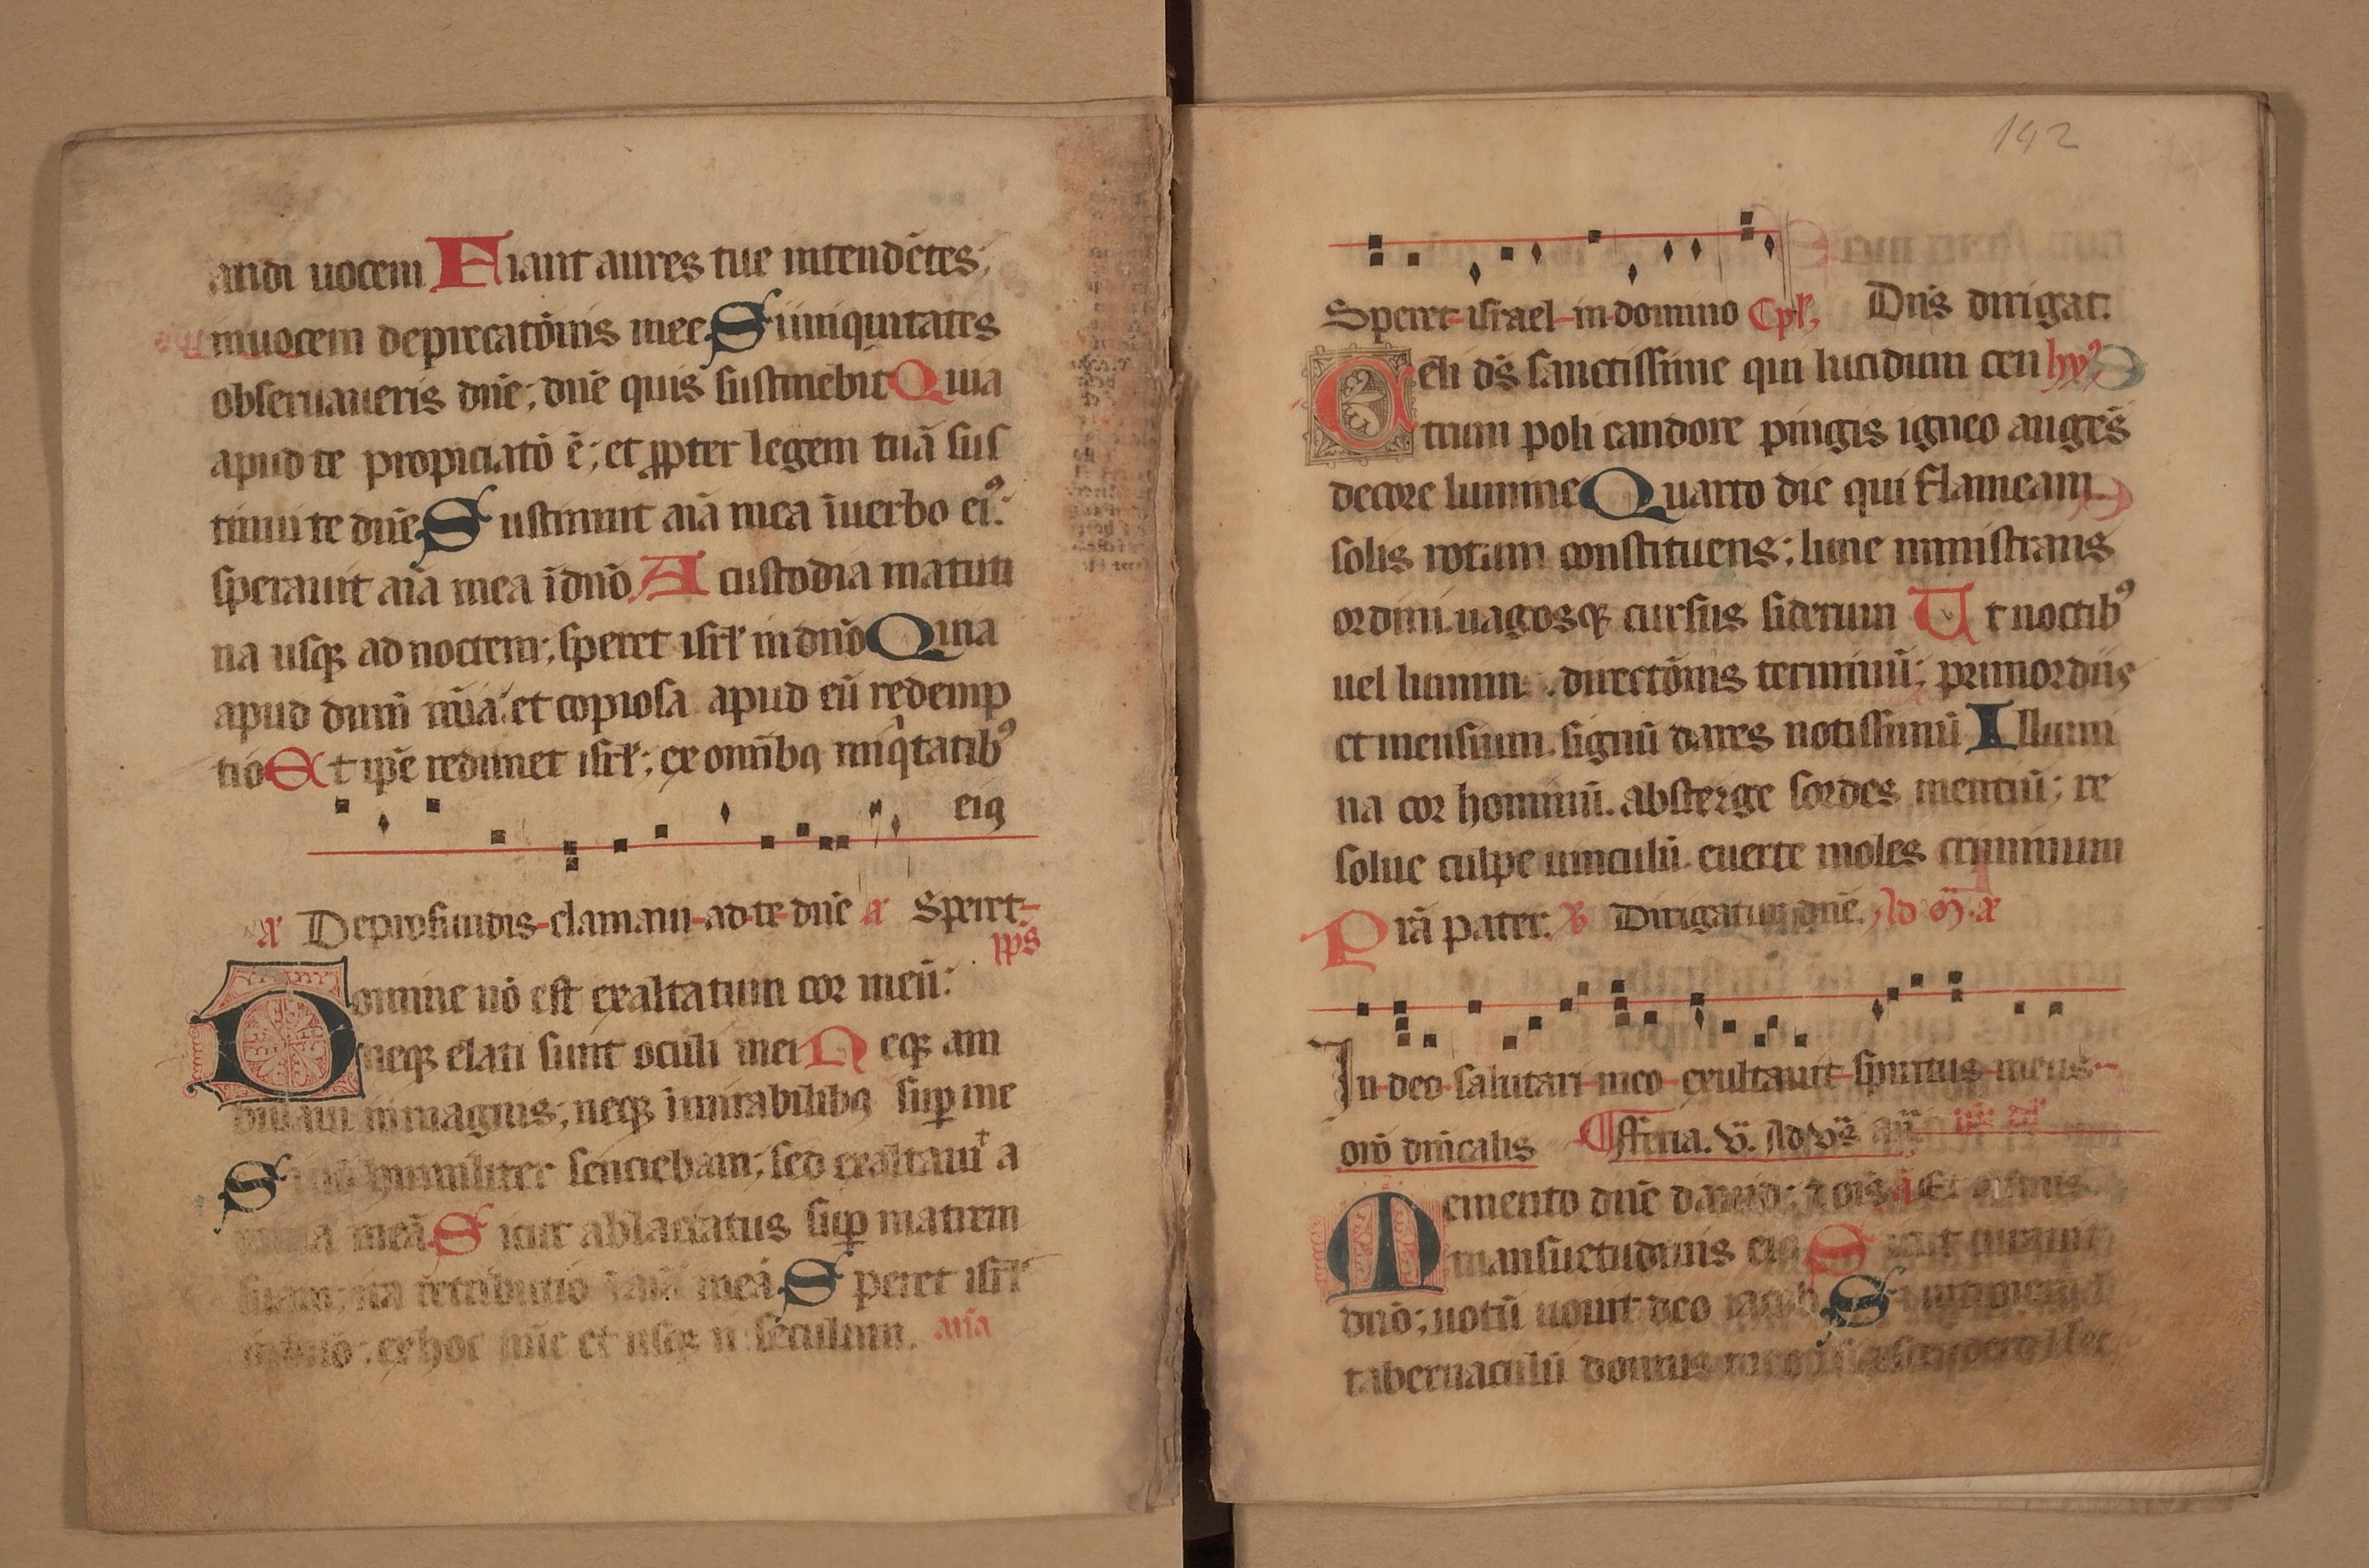 audi uocem Fiant aures tue intendētes;
inuocem depręcatōnis mee Si iniquitates
obseruaueris dñe; dñe quis sustinebit Quia
apud te propiciatō ē; et ꝓpter legem tuā sus
tinui te dñe Sustinuit aīa mea īuerbo eiꝰ:
sperauit aīa mea ī dñō A custodia matuti
na usqꝫ ad noctem; speret isrł in dñō Quia
apud dnm̄ mīa et copiosa apud eū redemp
tio Et ip̄e redimet isrł; ex omībꝫ iniqͥtatibꝰ
eiꝰ
a De profundis clamaui ad te dñe a Speret
pp̄s
Domine nō est exaltatum cor meū:
neqꝫ elati sunt oculi mei Neqꝫ am
bulaui ī magnis; neqꝫ ī mirabilibꝫ suꝑ me
Si nō humiliter senciebam; sed exaltauiᵗ a
meā Sicut ablactatus suꝑ matrem
suam; ita retributio ī aīa meā Speret isrł
in dñō; ex hoc nūc et usqꝫ in seculum. aña
142
Speret israel in domino Cpł, Dn̄s dirigat.
Celi dš sanctissime qui lucidum cen hyꝰ
trum poli candore pingis igneo augēs
decore lumine Quarto die qui flameam
solis rotam constituens; lune ministrans
ordini uagosqꝫ cursus siderum Ut noctibꝰ
uel lumin directōnis terminū; primordiis
et mensium signū dares notissimū Illumi
na cor hominū. absterge sordes mentiū; re
solue culpe uinculū euerte moles criminum
Prā pater. ℣ Dirigatur dñe. Ad ṁ a
In deo salutari meo exultauit spiritus meus
orō dn̄icalis Fferia. v. Ad vs̄ añ
Memento dñe dauid; ⁊ oīs
mansuetudinis eiꝰ Sicut iurauit
dñō; uotū uouit deo iacob Si
tabernaculū domus